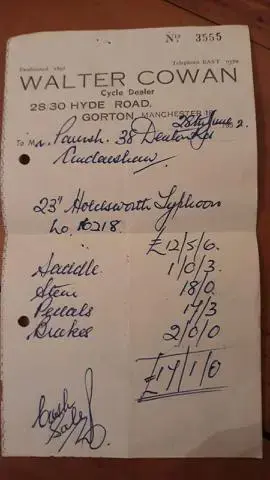 Established 1891
No 3555
Telephone EAST 0570
WALTER COWAN
Cycle Dealer
28/30 HYDE ROAD,
GORTON, MANCHESTER 18
28th June 1952.
To Mr. Parrish. 38 Denton Rd
Audenshaw.
23" Holdsworth Typhoon
No. 16218.
£12/5/6.
Saddle. 1/0/3.
Stem 18/0
Pedals 17/3
Brakes 2/0/0
£17/1/0
Cash
Sale